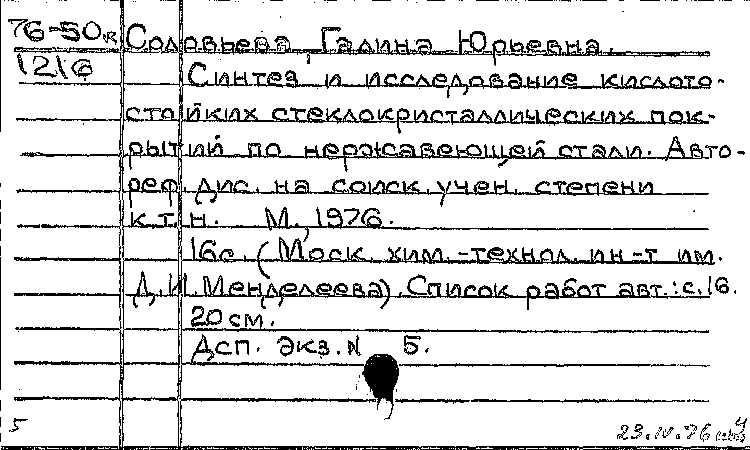 76-50к Соловьева, Галина Юрьевна.
1216 Синтез и исследование кислото-
стойких стеклокристаллических пок-
рытий по нержавеющей стали. Авто-
реф. дис. на соиск. учен. степени
к.т.н. М., 1976.
16с. (Моск. хим.-технол. ин-т им.
Д.И. Менделеева). Список работ авт.: с. 16.
20 см.
Дсп. Экз. N 5.
5 23.IV.76